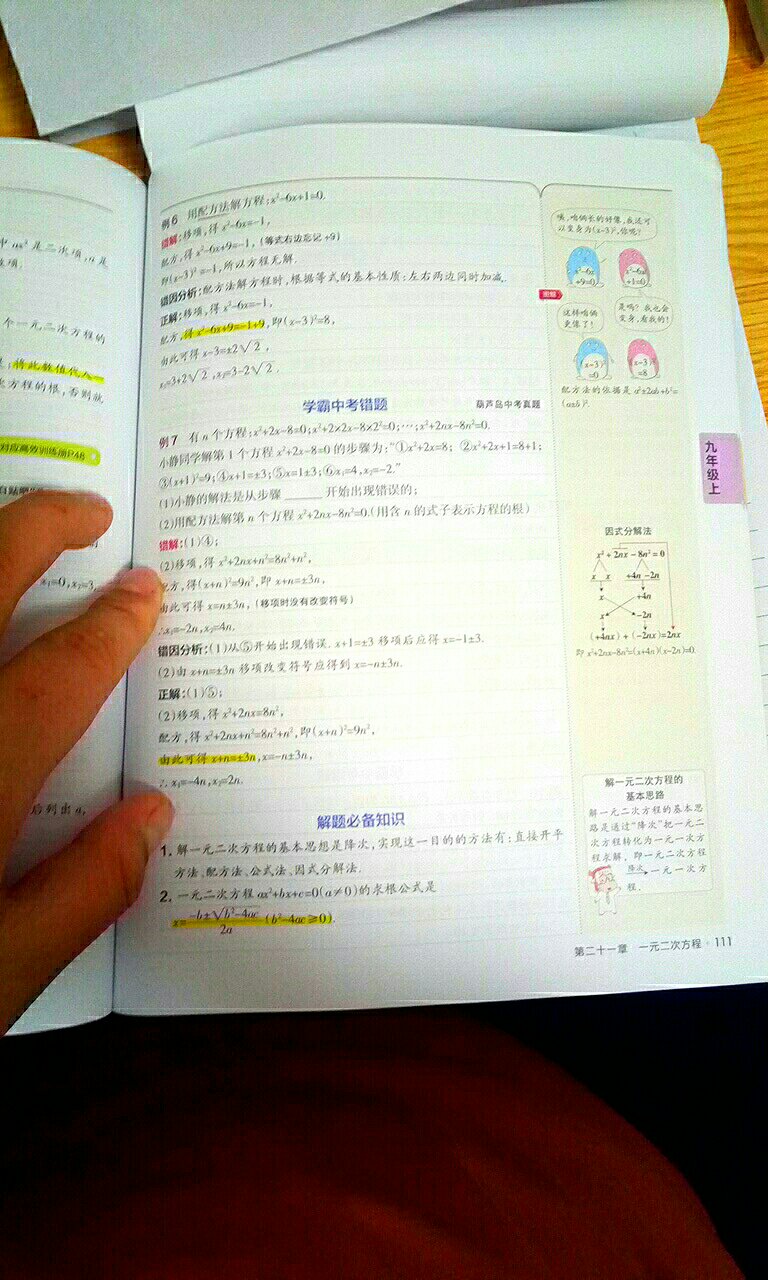 中 ax² 是二次项,a 是
数项.
个一元二次方程的
是;将此数值代入一
次方程的根,否则就
对应高效训练册P48
x₁=0,x₂=3.
后列出 a,
例6 用配方法解方程:x²-6x+1=0.
错解:移项,得 x²-6x=-1,
配方,得 x²-6x+9=-1,(等式右边忘记 +9)
即(x-3)²=-1,所以方程无解.
错因分析:配方法解方程时,根据等式的基本性质:左右两边同时加减.
正解:移项,得 x²-6x=-1,
配方,得 x²-6x+9=-1+9,即(x-3)²=8,
由此可得 x-3=±2√2,
x₁=3+2√2,x₂=3-2√2.
学霸中考错题 葫芦岛中考真题
例7 有 n 个方程:x²+2x-8=0;x²+2×2x-8×2²=0;…;x²+2nx-8n²=0.
小静同学解第 1 个方程 x²+2x-8=0 的步骤为:“①x²+2x=8; ②x²+2x+1=8+1;
③(x+1)²=9;④x+1=±3;⑤x=1±3;⑥x₁=4,x₂=-2.”
(1)小静的解法是从步骤______开始出现错误的;
(2)用配方法解第 n 个方程 x²+2nx-8n²=0.(用含 n 的式子表示方程的根)
错解:(1)④;
(2)移项,得 x²+2nx+n²=8n²+n²,
配方,得(x+n)²=9n²,即 x+n=±3n,
由此可得 x=n±3n,(移项时没有改变符号)
∴x₁=-2n,x₂=4n.
错因分析:(1)从⑤开始出现错误. x+1=±3 移项后应得 x=-1±3.
(2)由 x+n=±3n 移项改变符号应得到 x=-n±3n.
正解:(1)⑤;
(2)移项,得 x²+2nx=8n²,
配方,得 x²+2nx+n²=8n²+n²,即(x+n)²=9n²,
由此可得 x+n=±3n,x=-n±3n,
∴ x₁=-4n,x₂=2n.
解题必备知识
1. 解一元二次方程的基本思想是降次,实现这一目的的方法有:直接开平
方法、配方法、公式法、因式分解法.
2. 一元二次方程 ax²+bx+c=0(a≠0)的求根公式是
x=(-b±√(b²-4ac))/2a (b²-4ac≥0).
咦,咱俩长的好像,我还可
以变身为(x-3)²,你呢?
x²-6x
+9=0
x²-6x
+1=0
图解
这样咱俩
更像了!
是吗?我也会
变身,看我的!
(x-3)²
=0
(x-3)²
=8
配方法的依据是 a²±2ab+b²=
(a±b)².
九年级上
因式分解法
x²+2nx-8n²=0
x x +4n -2n
x +4n
x -2n
(+4nx)+(-2nx)=2nx
即 x²+2nx-8n²=(x+4n)(x-2n)=0.
解一元二次方程的
基本思路
解一元二次方程的基本思
路是通过“降次”把一元二
次方程转化为一元一次方
程求解, 即一元二次方程
降次
一元一次方
程.
第二十一章 一元二次方程 · 111